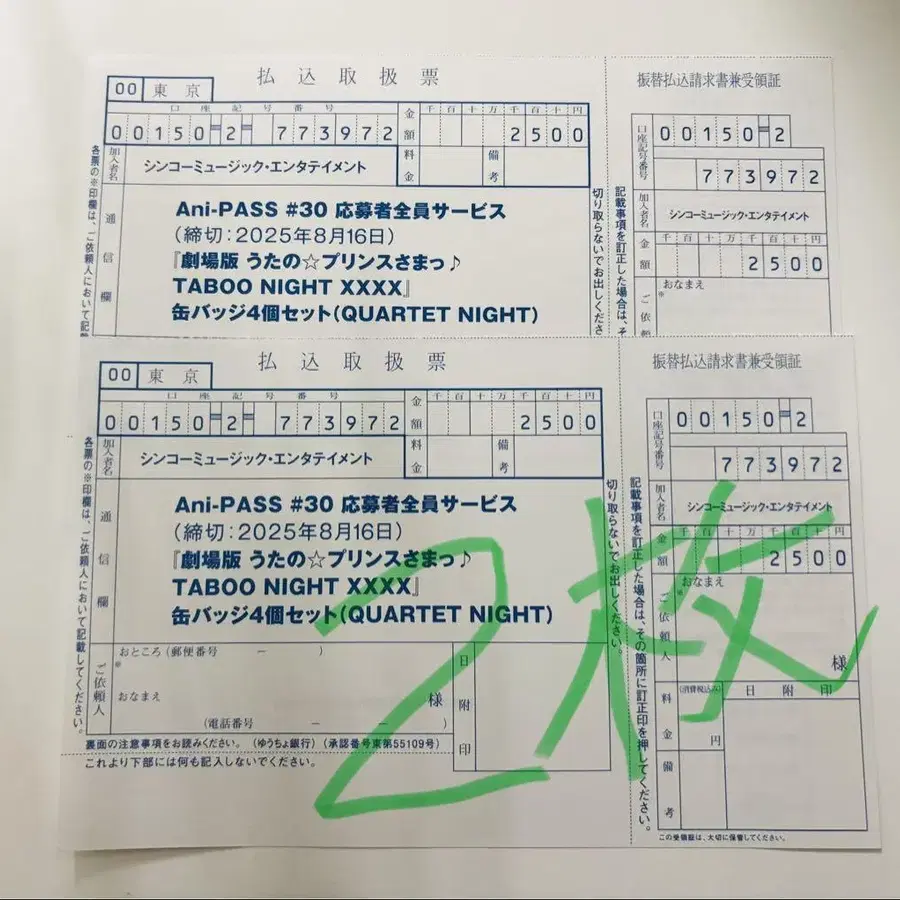 払込取扱票
00 東京
口座記号番号
00150-2-773972
金額 千百十万千百十円
2500
加入者名 シンコーミュージック・エンタテイメント
料金 備考
通信欄
Ani-PASS #30 応募者全員サービス
(締切:2025年8月16日)
『劇場版 うたの☆プリンスさまっ♪
TABOO NIGHT XXXX』
缶バッジ4個セット(QUARTET NIGHT)
各票の※印欄は、ご依頼人において記載
切り取らないでお出しくださ
記載事項を訂正した場合は、そ
振替払込請求書兼受領証
口座記号番号
00150-2
773972
加入者名 シンコーミュージック・エンタテイメント
金額 千百十万千百十円
2500
おなまえ
※
ご依頼
払込取扱票
00 東京
口座記号番号
00150-2-773972
金額 千百十万千百十円
2500
加入者名 シンコーミュージック・エンタテイメント
料金 備考
通信欄
Ani-PASS #30 応募者全員サービス
(締切:2025年8月16日)
『劇場版 うたの☆プリンスさまっ♪
TABOO NIGHT XXXX』
缶バッジ4個セット(QUARTET NIGHT)
ご依頼人
おところ(郵便番号 - )
※
おなまえ
様
(電話番号 - - )
日附印
裏面の注意事項をお読みください。(ゆうちょ銀行)(承認番号東第55109号)
これより下部には何も記入しないでください。
各票の※印欄は、ご依頼人において記載してください。
切り取らないでお出しください。
記載事項を訂正した場合は、その箇所に訂正印を押してください。
振替払込請求書兼受領証
口座記号番号
00150-2
773972
加入者名 シンコーミュージック・エンタテイメント
金額 千百十万千百十円
2500
おなまえ
※
ご依頼人
様
料金
(消費税込み)
円
日附印
備考
この受領証は、大切に保管してください。
2枚